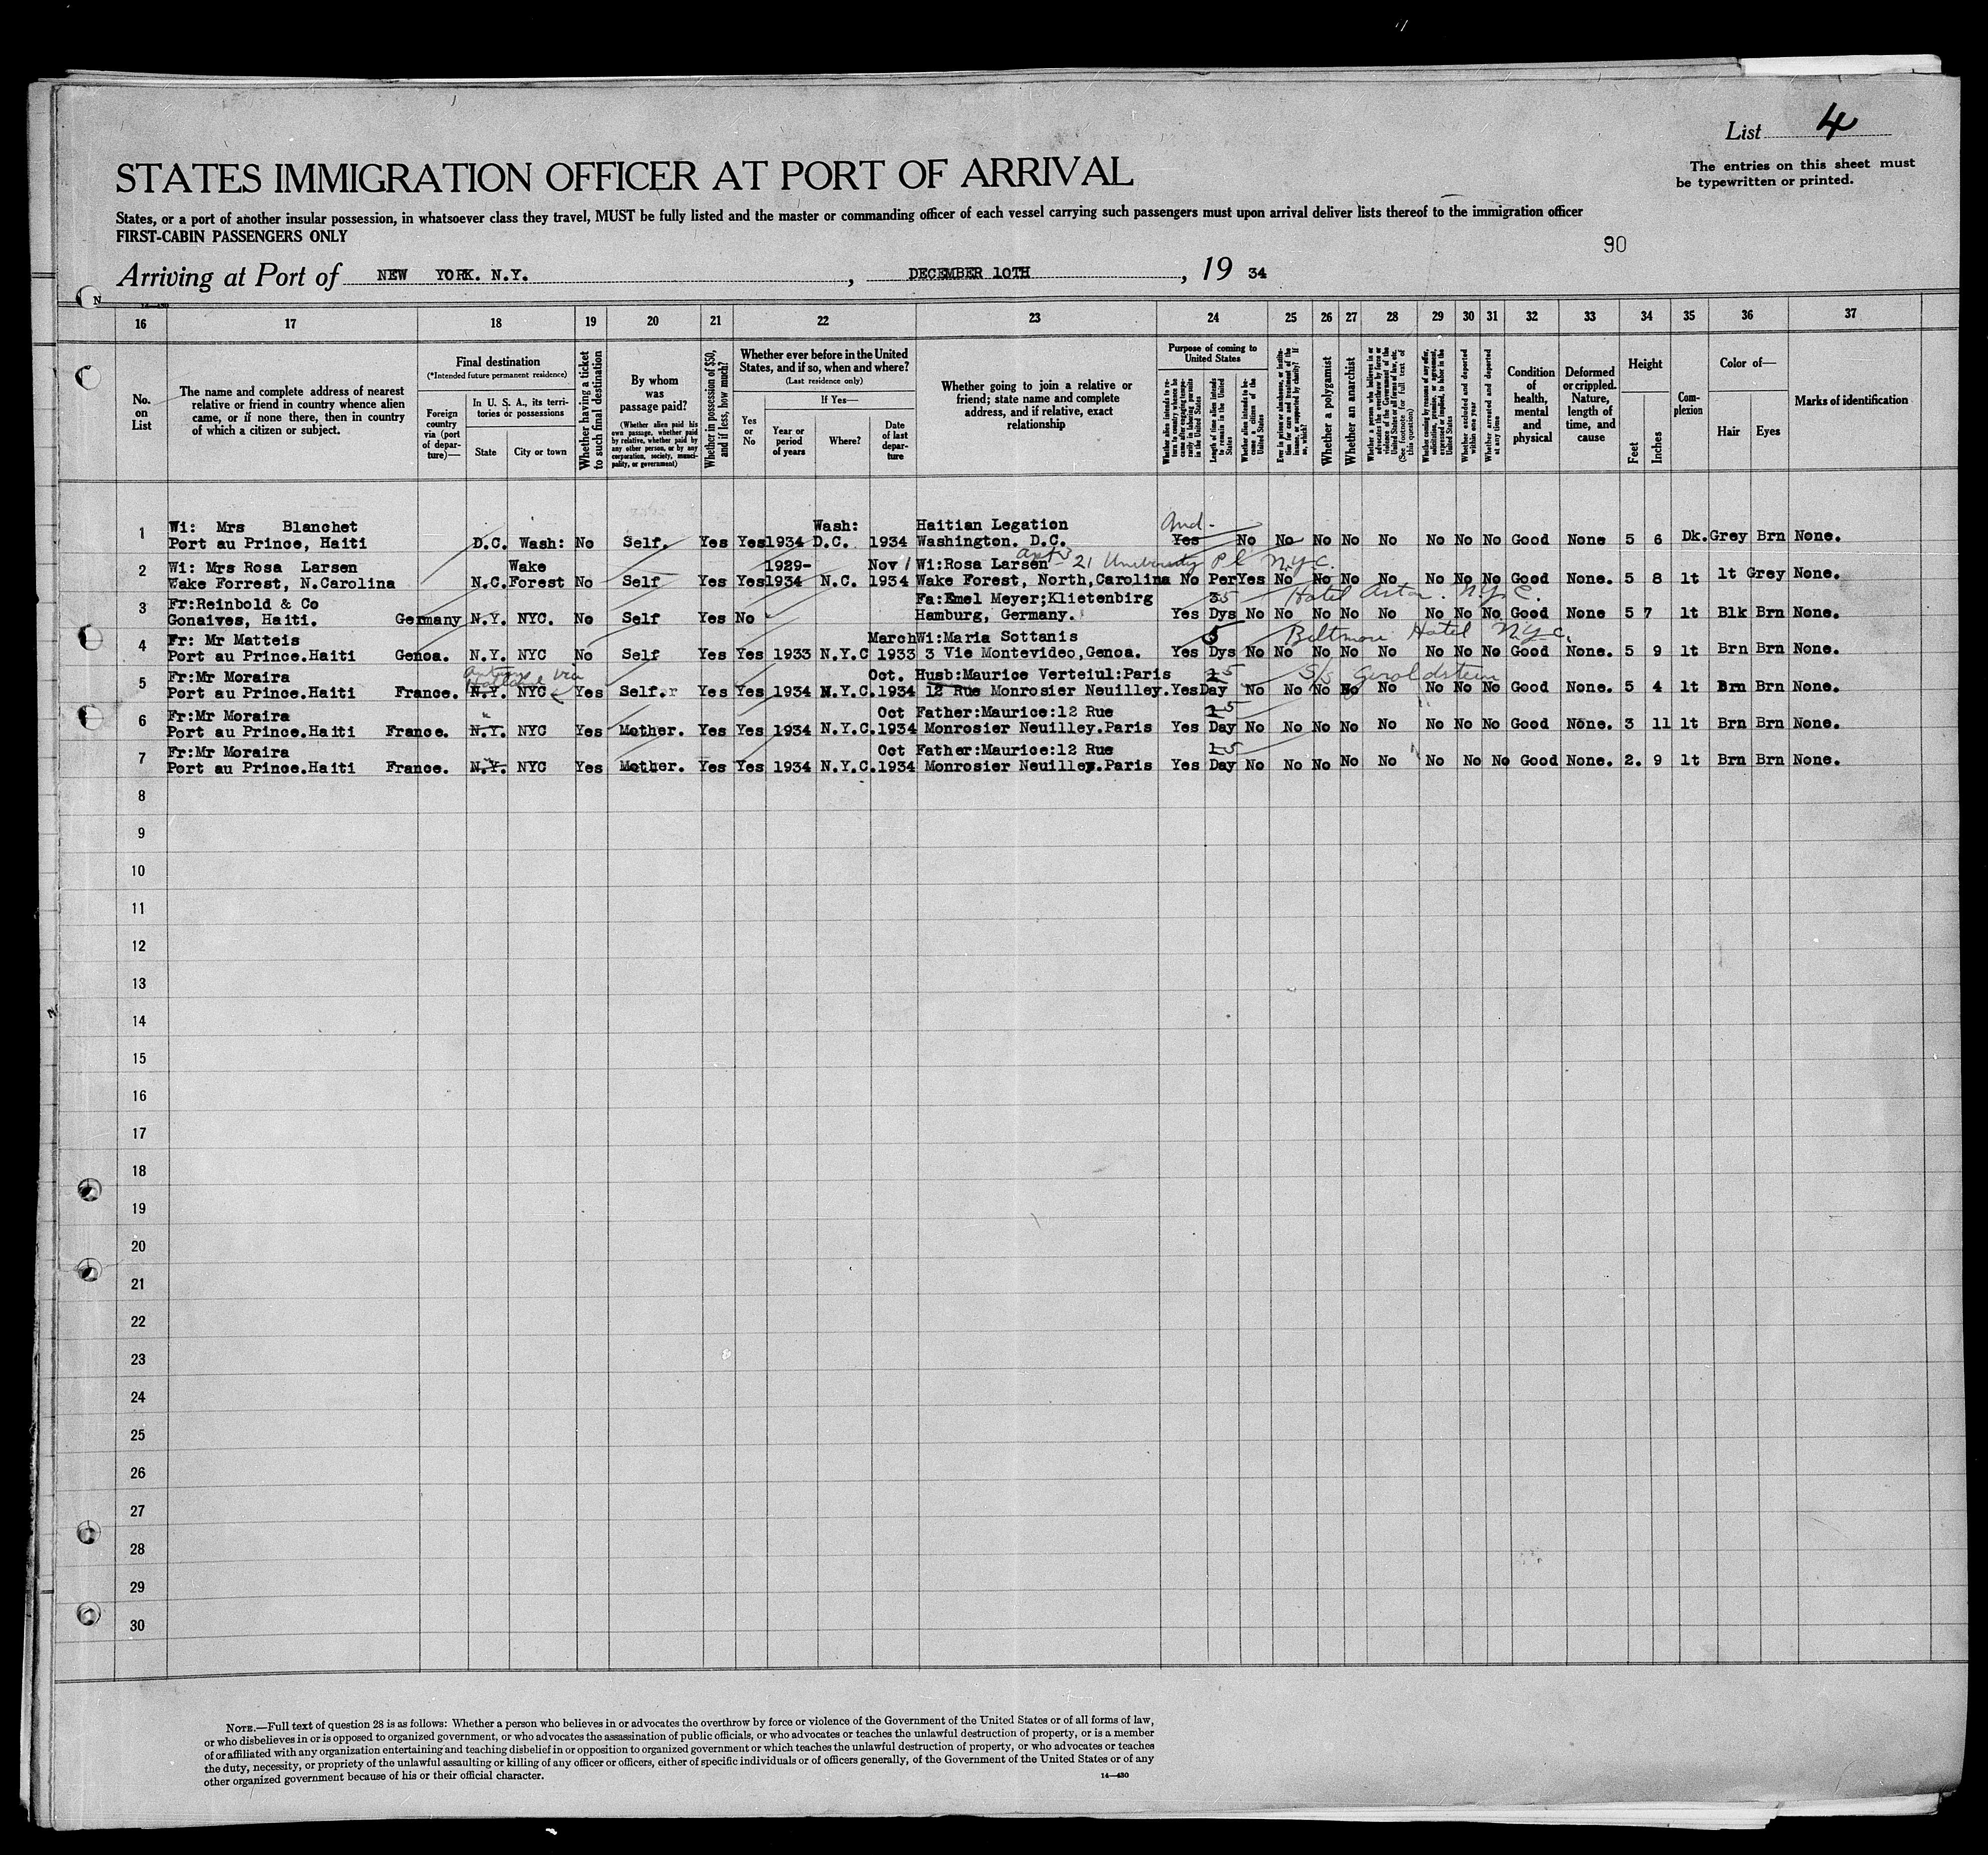 List 4
The entries on this sheet must
be typewritten or printed.
STATES IMMIGRATION OFFICER AT PORT OF ARRIVAL
States, or a port of another insular possession, in whatsoever class they travel, MUST be fully listed and the master or commanding officer of each vessel carrying such passengers must upon arrival deliver lists thereof to the immigration officer
FIRST-CABIN PASSENGERS ONLY
90
Arriving at Port of NEW YORK. N.Y. , DECEMBER 10TH , 19 34
16 17 18 19 20 21 22 23 24 25 26 27 28 29 30 31 32 33 34 35 36 37
No. on List
The name and complete address of nearest relative or friend in country whence alien came, or if none there, then in country of which a citizen or subject.
Final destination
(*Intended future permanent residence)
Foreign country via (port of departure)—
In U. S. A., its territories or possessions
State
City or town
Whether having a ticket to such final destination
By whom was passage paid?
(Whether alien paid his own passage, whether paid by relative, whether paid by any other person, or by any corporation, society, municipality, or government)
Whether in possession of $50, and if less, how much?
Whether ever before in the United States, and if so, when and where?
(Last residence only)
Yes or No
If Yes—
Year or period of years
Where?
Date of last departure
Whether going to join a relative or friend; state name and complete address, and if relative, exact relationship
Purpose of coming to United States
Length of time alien intends to remain in the United States
Whether alien intends to become a citizen of the United States
Whether a polygamist
Whether an anarchist
Whether excluded and deported within one year
Whether arrested and deported at any time
Condition of health, mental and physical
Deformed or crippled. Nature, length of time, and cause
Height
Feet
Inches
Complexion
Color of—
Hair
Eyes
Marks of identification
Wi: Mrs Blanchet Wash: Haitian Legation
1 Port au Prince, Haiti D.C. Wash: No Self. Yes Yes 1934 D.C. 1934 Washington. D.C. Yes No No No No No No No No Good None 5 6 Dk. Grey Brn None.
Wi: Mrs Rosa Larsen Wake 1929- Nov Wi:Rosa Larsen 21 University Pl N.Y.C.
2 Wake Forrest, N.Carolina N.C. Forest No Self Yes Yes 1934 N.C. 1934 Wake Forest, North,Carolina No Per Yes No No No No No No No Good None. 5 8 lt lt Grey None.
Fr:Reinbold & Co Fa:Emel Meyer;Klietenbirg Hotel Astor. N.Y.C.
3 Gonaives, Haiti. Germany N.Y. NYC. No Self Yes No Hamburg, Germany. Yes Dys No No No No No No No No Good None 5 7 lt Blk Brn None.
Fr: Mr Matteis March Wi:Maria Sottanis 5 Biltmore Hotel N.Y.C.
4 Port au Prince.Haiti Genoa. N.Y. NYC No Self Yes Yes 1933 N.Y.C 1933 3 Vie Montevideo,Genoa. Yes Dys No No No No No No No No Good None. 5 9 lt Brn Brn None.
Fr:Mr Moraira via Oct. Husb:Maurice Verteiul:Paris 5 S/s
5 Port au Prince.Haiti France. N.Y. NYC Yes Self. Yes Yes 1934 N.Y.C. 1934 12 Rue Monrosier Neuilley. Yes Day No No No No No No No No Good None. 5 4 lt Brn Brn None.
Fr:Mr Moraira Oct Father:Maurice:12 Rue 5
6 Port au Prince.Haiti France. N.Y. NYC Yes Mother. Yes Yes 1934 N.Y.C. 1934 Monrosier Neuilley.Paris Yes Day No No No No No No No No Good None. 3 11 lt Brn Brn None.
Fr:Mr Moraira Oct Father:Maurice:12 Rue 5
7 Port au Prince.Haiti France. N.Y. NYC Yes Mother. Yes Yes 1934 N.Y.C. 1934 Monrosier Neuilley.Paris Yes Day No No No No No No No No Good None. 2. 9 lt Brn Brn None.
8
9
10
11
12
13
14
15
16
17
18
19
20
21
22
23
24
25
26
27
28
29
30
NOTE.—Full text of question 28 is as follows: Whether a person who believes in or advocates the overthrow by force or violence of the Government of the United States or of all forms of law,
or who disbelieves in or is opposed to organized government, or who advocates the assassination of public officials, or who advocates or teaches the unlawful destruction of property, or is a member
of or affiliated with any organization entertaining and teaching disbelief in or opposition to organized government or which teaches the unlawful destruction of property, or who advocates or teaches
the duty, necessity, or propriety of the unlawful assaulting or killing of any officer or officers, either of specific individuals or of officers generally, of the Government of the United States or of any
other organized government because of his or their official character.
14—430